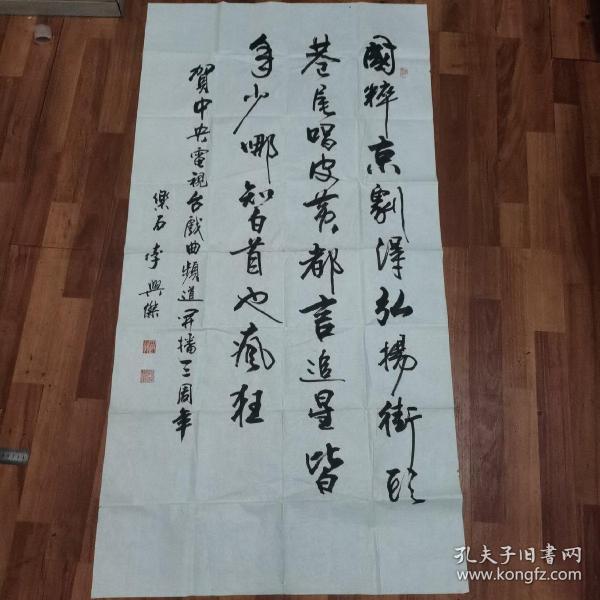 國粹京劇澤弘揚街頭
巷尾唱皮黃都言追星皆
年少哪知白首也瘋狂
賀中央電視台戲曲頻道開播三周年
樂石李興傑
孔夫子旧书网
www.kongfz.com